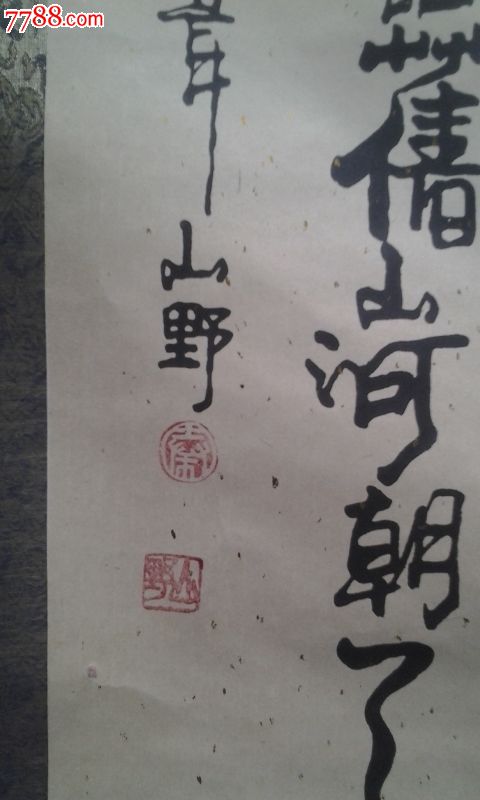 7788.com
舊山河朝
山野
秦
山野